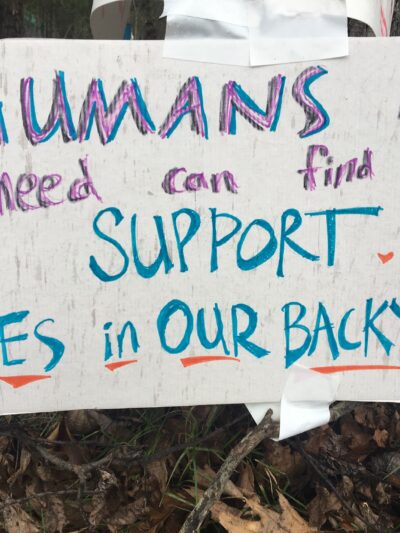 HUMANS
need can find
SUPPORT
ES in OUR BACKY